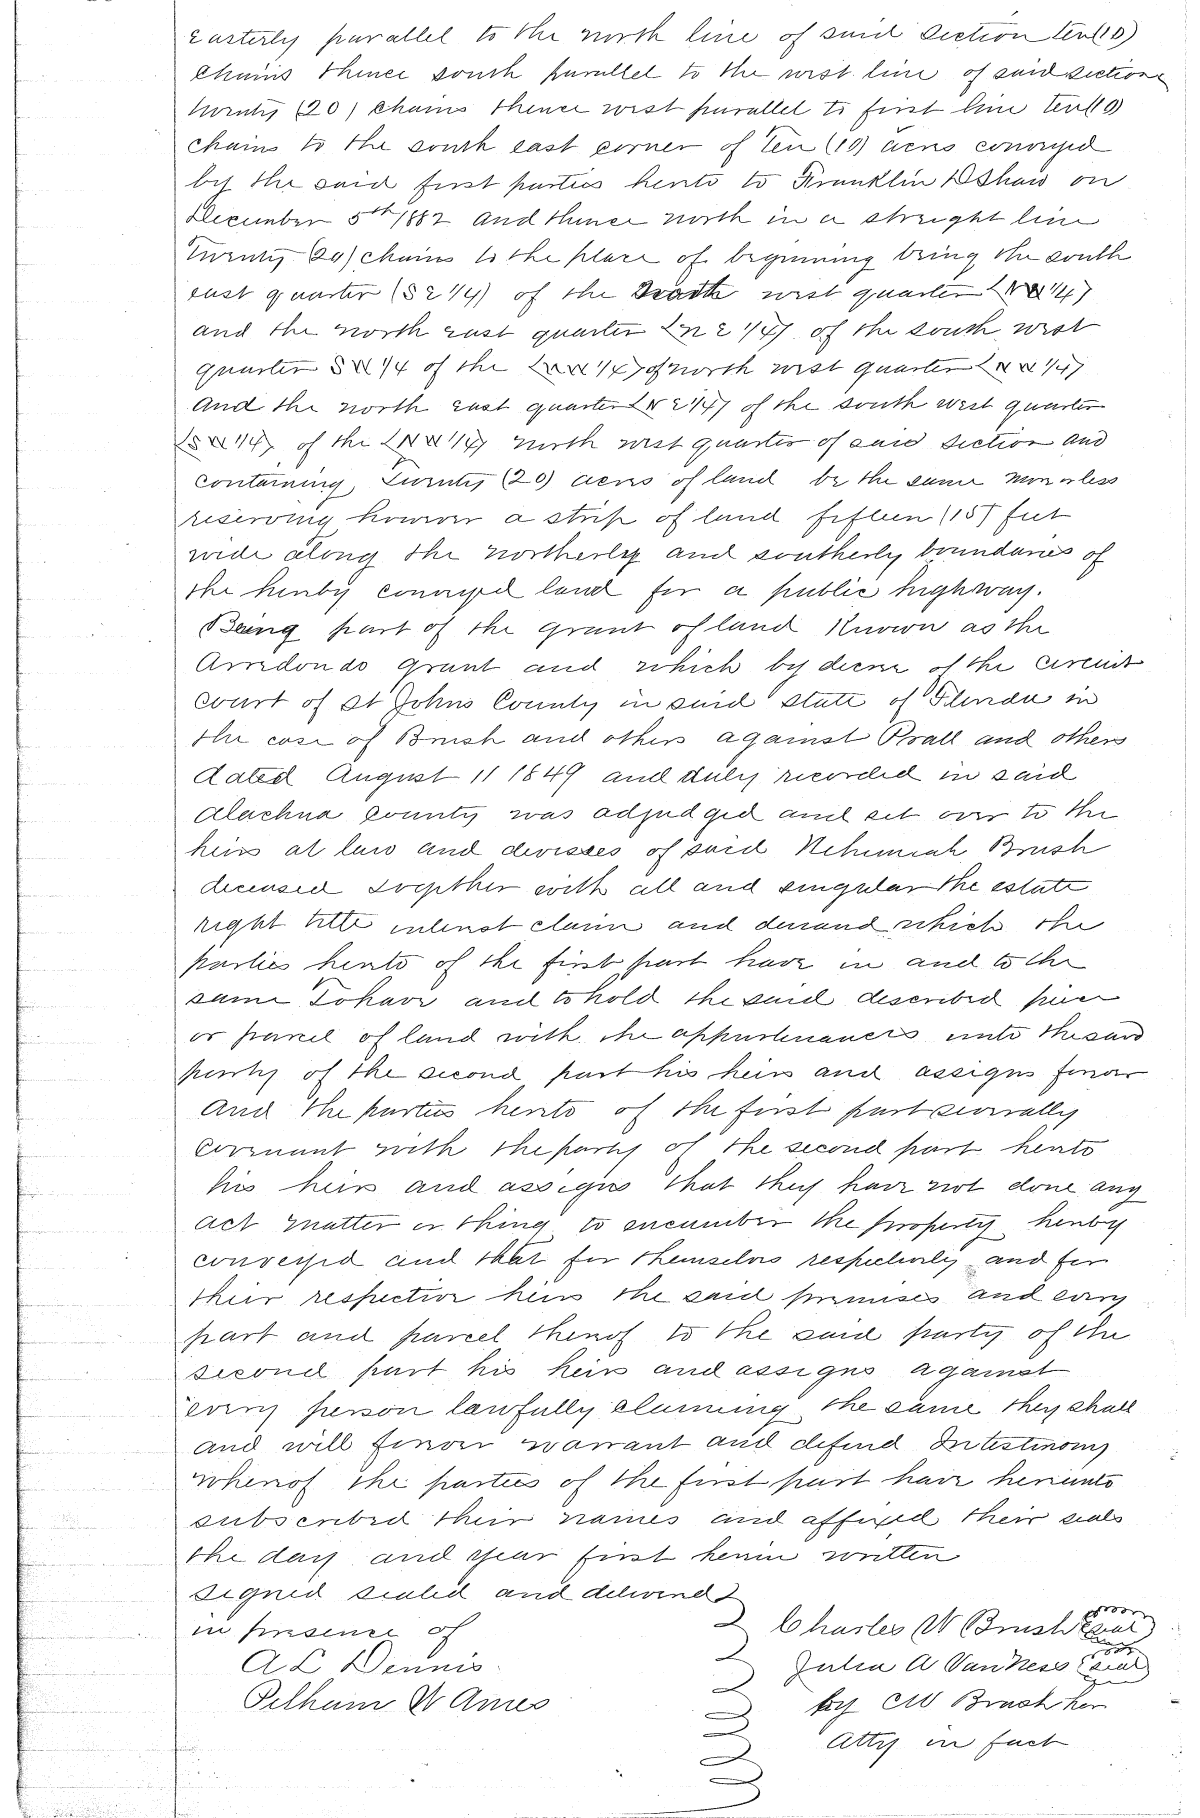 easterly parallel to the north line of said section ten (10)
chains thence south parallel to the west line of said section
twenty (20) chains thence west parallel to first line ten (10)
chains to the south east corner of Ten (10) acres conveyed
by the said first parties hereto to Franklin D Shaw on
December 5th 1882 and thence north in a straight line
Twenty (20) chains to the place of beginning being the south
east quarter (S E 1/4) of the west quarter (N W 1/4)
and the north east quarter (N E 1/4) of the south west
quarter S W 1/4 of the (N W 1/4) of north west quarter (N W 1/4)
And the north east quarter (N E 1/4) of the south west quarter
(S W 1/4) of the (N W 1/4) north west quarter of said section and
containing Twenty (20) acres of land be the same more or less
reserving however a strip of land fifteen (15) feet
wide along the northerly and southerly boundaries of
the hereby conveyed land for a public highway.
Being part of the grant of land Known as the
Arredondo grant and which by decree of the circuit
court of St Johns County in said state of Florida in
the case of Brush and others against Prall and others
dated August 11 1849 and duly recorded in said
Alachua County was adjudged and set over to the
heirs at law and devisees of said Nehemiah Brush
deceased together with all and singular the estate
right title interest claim and demand which the
parties hereto of the first part have in and to the
same To have and to hold the said described piece
or parcel of land with the appurtenances unto the said
party of the second part his heirs and assigns forever
And the parties hereto of the first part severally
covenant with the party of the second part hereto
his heirs and assigns that they have not done any
act matter or thing to encumber the property hereby
conveyed and that for themselves respectively and for
their respective heirs the said premises and every
part and parcel thereof to the said party of the
second part his heirs and assigns against
every person lawfully claiming the same they shall
and will forever warrant and defend In testimony
whereof the parties of the first part have hereunto
subscribed their names and affixed their seals
the day and year first herein written
signed sealed and delivered
in presence of
Charles W Brush (seal)
A L Dennis
Julia A VanNess (seal)
Pelham W Ames
by C W Brush her
Atty in fact